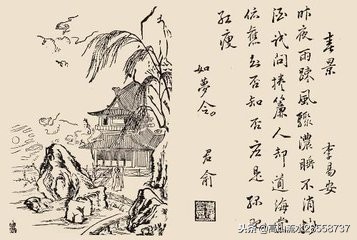 春景
李易安
昨夜雨踈風驟濃睡不消殘
酒試問捲簾人却道海棠
依舊知否知否應是綠肥
紅瘦
如夢令。
君俞
头条@高山流水23558737